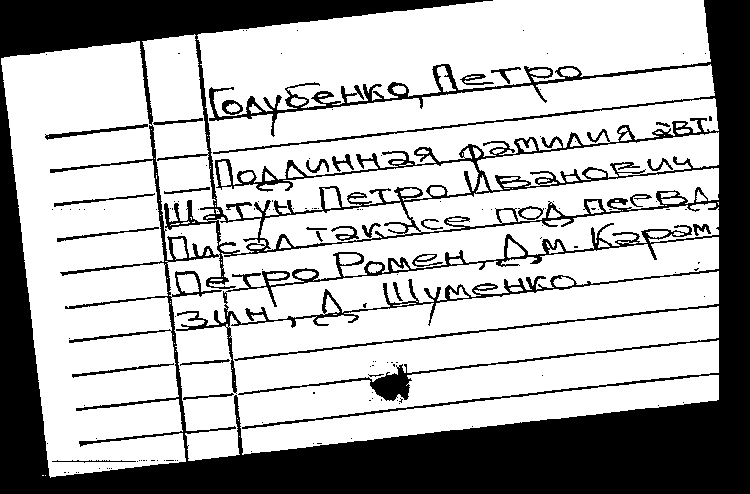 Голубенко, Петро
Подлинная фамилия авт.:
Шатун Петро Иванович.
Писал также под псевд.
Петро Ромен, Дм. Карам-
зин, Д. Шуменко.